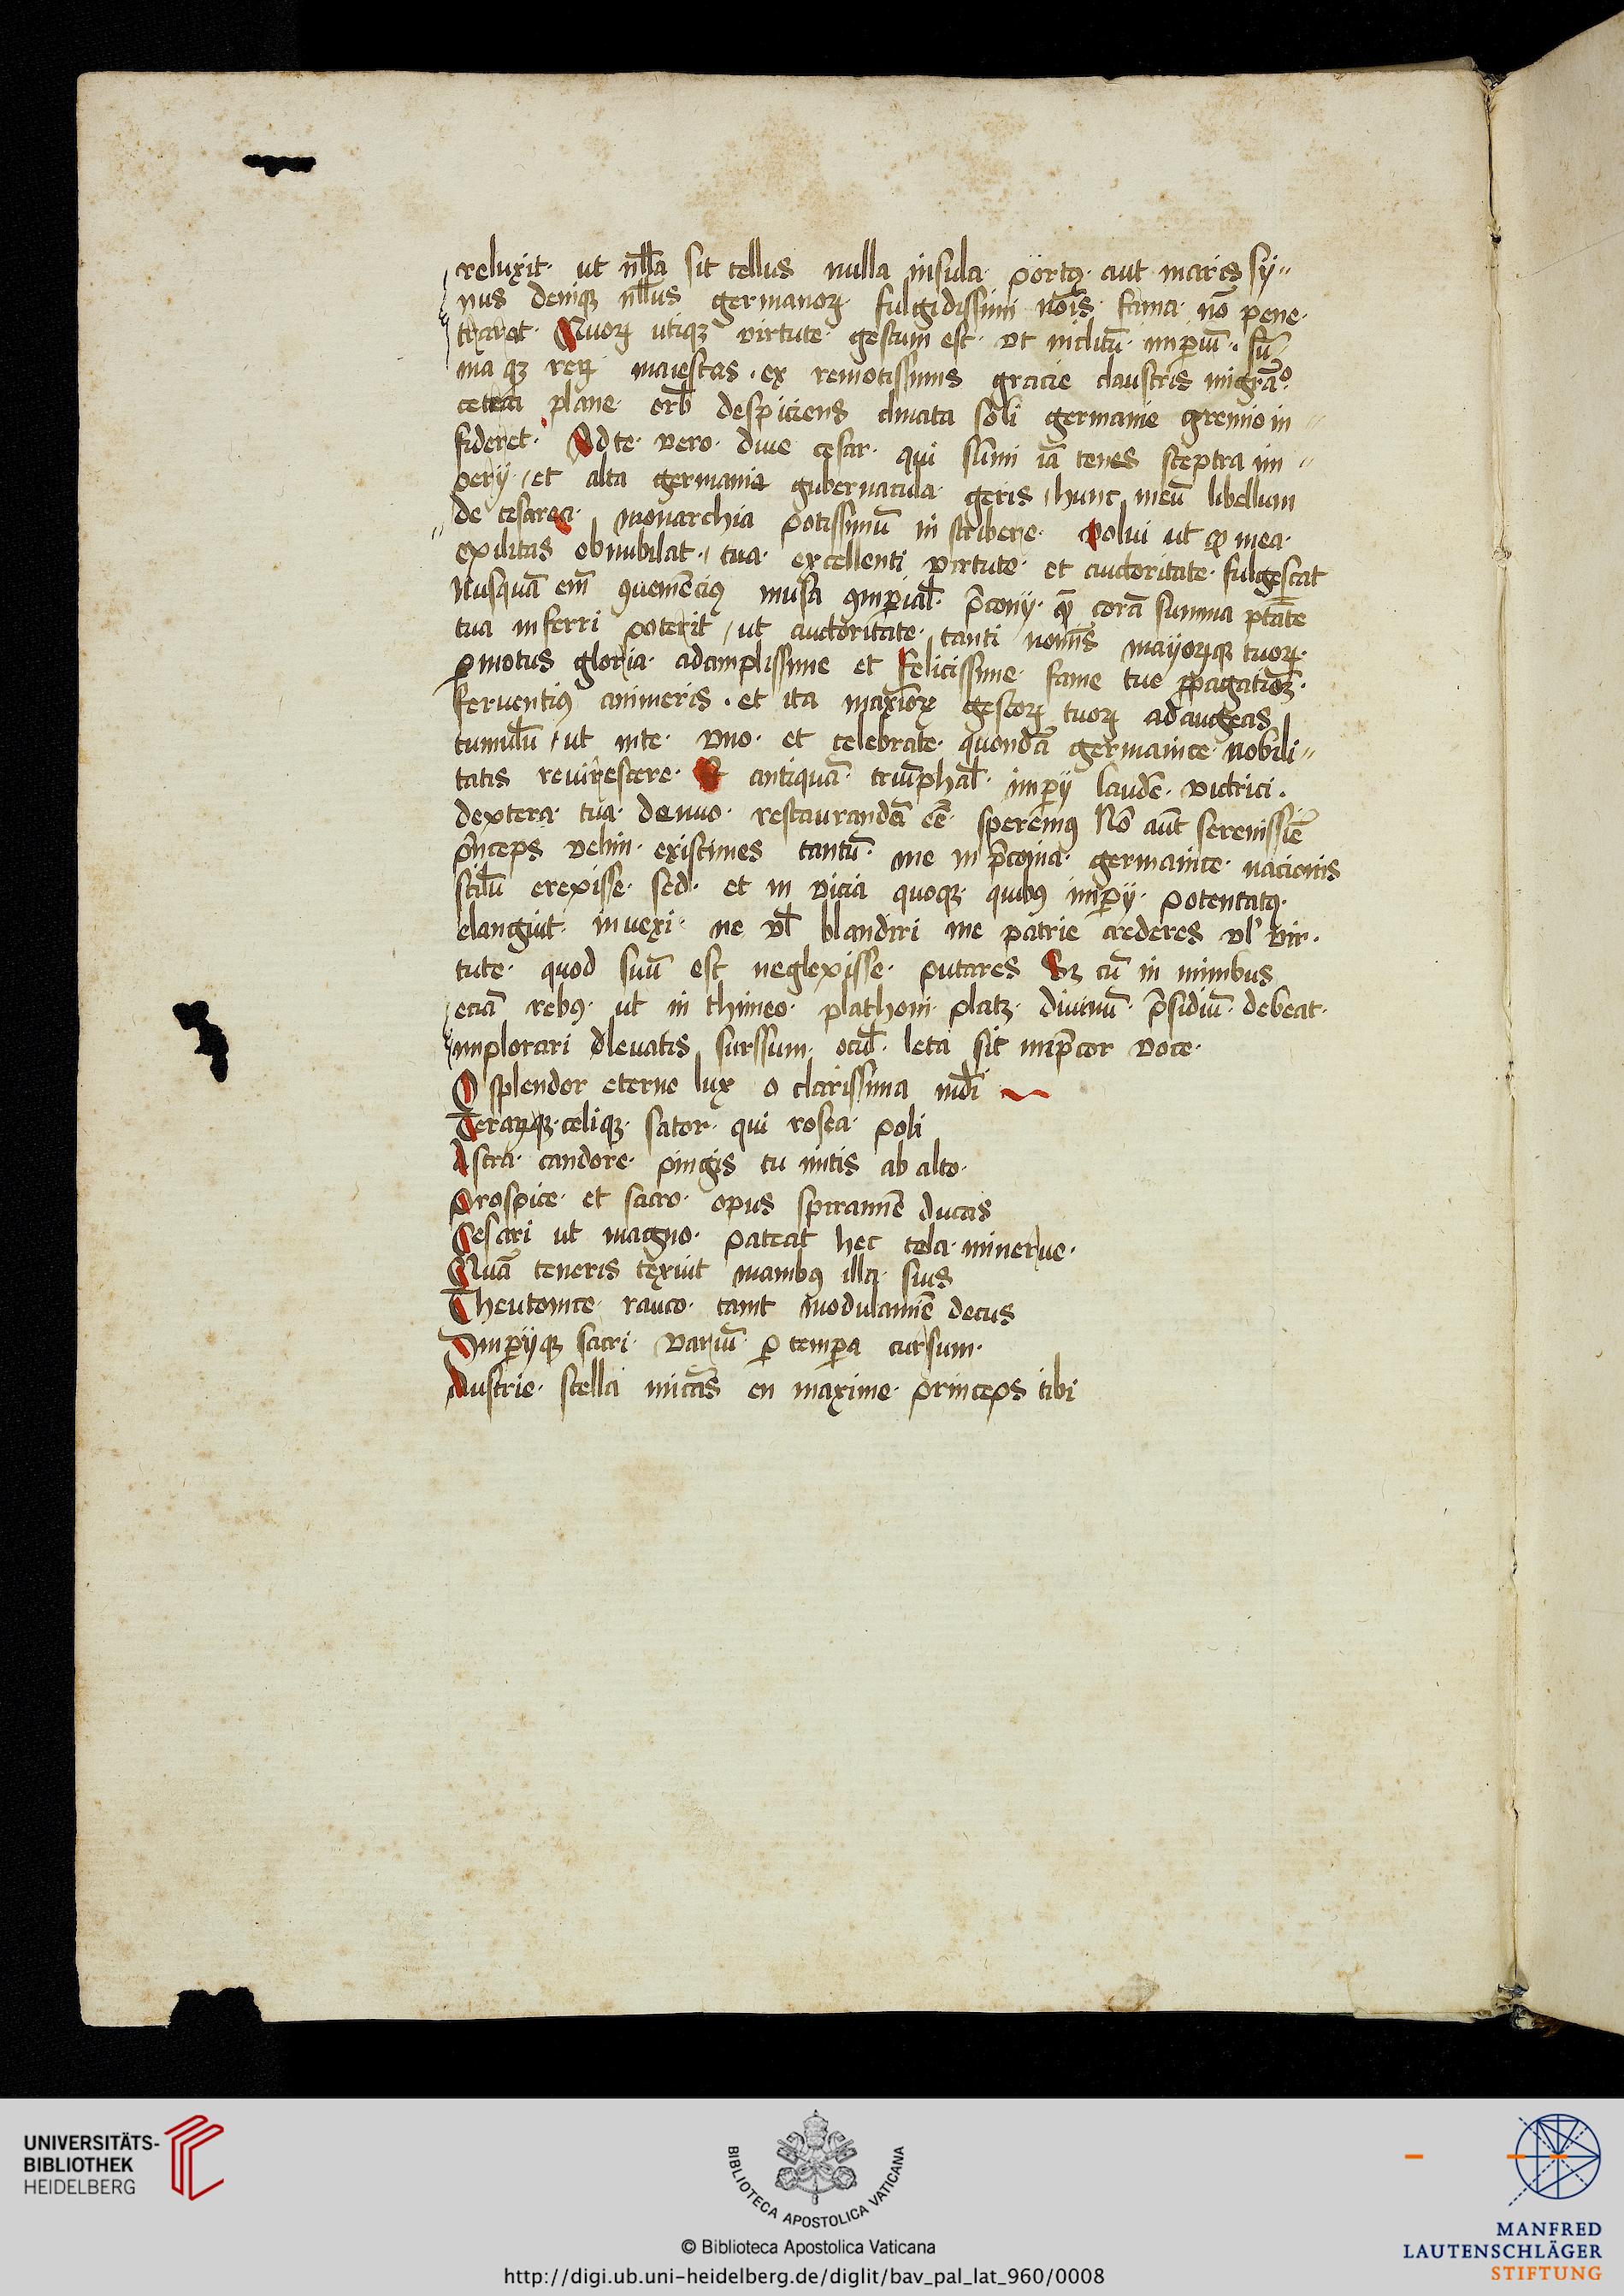 reluxit· ut nll̄a sit tellus nulla insula portꝰ aut maris sy〃
nus deniqꝫ nll̄us germanoꝝ fulgidissimi nōis fama nō pene·
traret· Quoꝝ utiqꝫ virtute gestum est· vt inclitū impiū· sū
ma qꝫ reꝝ maiestas· ex remotissimis grecie claustris migrās
cetera plane orb̄ despiciens climata soli germanie gremio in〃
sideret· Ad te vero diue cesar qui sūmi iā tenes sceptra im〃
perij / et alta germanie gubernacula geris / hunc meū libellum
de cesarea monarchia potissimū in scribere· volui ut qđ mea
exilitas obnubilat / tua excellenti virtute et auctoritate fulgescat
Nusquā em̄ musa p̄conij corā summa ptāte
tua inferri poterit / ut auctoritate tanti nomīs mayoꝝqꝫ tuoꝝ
ꝓmotus gloria adamplissime et felicissime fame tue ꝓpagationē
feruentiꝰ animeris· et ita maximoꝝ gestoꝝ tuoꝝ adaugeas
cumulū / ut in te vno et celebrate quondā germanice nobili〃
tatis reuirescere Et antiquā triūphal̄ impij laudē victrici·
dextera tua denuo restaurandā eē speremꝰ Nō aūt serenissīe
p̄nceps velim existimes tantū me in p̄conia germanice nacionis
stilū erexisse sed et in vicia quoqꝫ quibꝰ impij potentatꝰ
elanguit inuexi ne vl̄ blandiri me patrie crederes vl̄ vir·
tute quod suū est neglexisse putares Sꝫ cū in minibus
eciā rebꝰ ut in thimeo plathoni platꝫ diuinū p̄sidiū debeat
implorari eleuatis surssum ocul̄ leta sit imp̄cor voce·
O splendor eterne lux o clarissima mūdi
Teraꝝqꝫ celiqꝫ sator qui rosea poli
Astra candore pingis tu mitis ab alto
Prospice et sacro opus spiramiē ducas
Cesari ut magno pateat hec tela minerue·
Quā teneris texuit manibꝰ illa suis
Theutonice rauco canit modulamiē decus
Impijqꝫ sacri variū ꝑ tempa cursum·
Austrie stella micās en maxime princeps tibi
UNIVERSITÄTS-
BIBLIOTHEK
HEIDELBERG
BIBLIOTECA APOSTOLICA VATICANA
© Biblioteca Apostolica Vaticana
http://digi.ub.uni-heidelberg.de/diglit/bav_pal_lat_960/0008
MANFRED
LAUTENSCHLÄGER
STIFTUNG